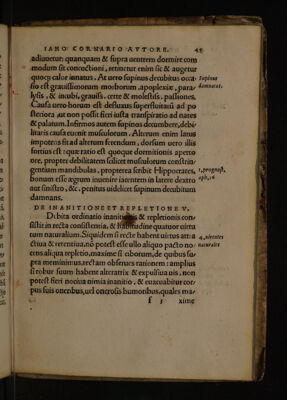 IANO CORNARIO AVTORE. 45
adiuuetur: quanquam & supra uentrem dormire com
modum sit concoctioni, attinetur enim sic & augetur
quoq; calor innatus. At uero supinus decubitus occa
sio est grauissimorum morborum, apoplexiæ, para
lysis, & incubi, grauis, certe & molestis, passiones.
Causa uero horum est defluxus superfluitatū ad po
steriora, aut non possit fieri iusta transpiratio ad nares
& palatum. Infernos autem supinus decumbere, debi
litatis causa euenit musculorum. Alterum enim latus
impotens sit ad alterum ferendum, dorsum uero illis
fortius est: quæ ratio est quoque dormitionis aperto
ore, propter debilitatem scilicet musculorum constrin
gentium mandibulas, propterea scribit Hippocrates,
bonum esse ægrum inuenire iacentem in latere dextro
aut sinistro, &c. penitus uidelicet supinum decubitum
damnans.
Supinus
damnatus.
1. prognost.
DE INANITIONE ET REPLETIONE V.
Debita ordinatio inanitionis & repletionis con-
sistit in recta consistentia, & habitudine quatuor uirtu
tum naturalium. Siquidem si recte habent uirtus attra
ctiua & retentiua, nō potest esse ullo aliquo pacto no
cens aliqua repletio, maxime si ciborum, de quibus su-
pra meminimus, rectam obserues rationem: amplius
si robur suum habent alteratrix & expulsiua uis, non
potest fieri nociua nimia inanitio, & euacuabitur cor
pus suis oneribus, uel onerosis humoribus, quales ma-
4. uirtutes
naturales
f 3 xime